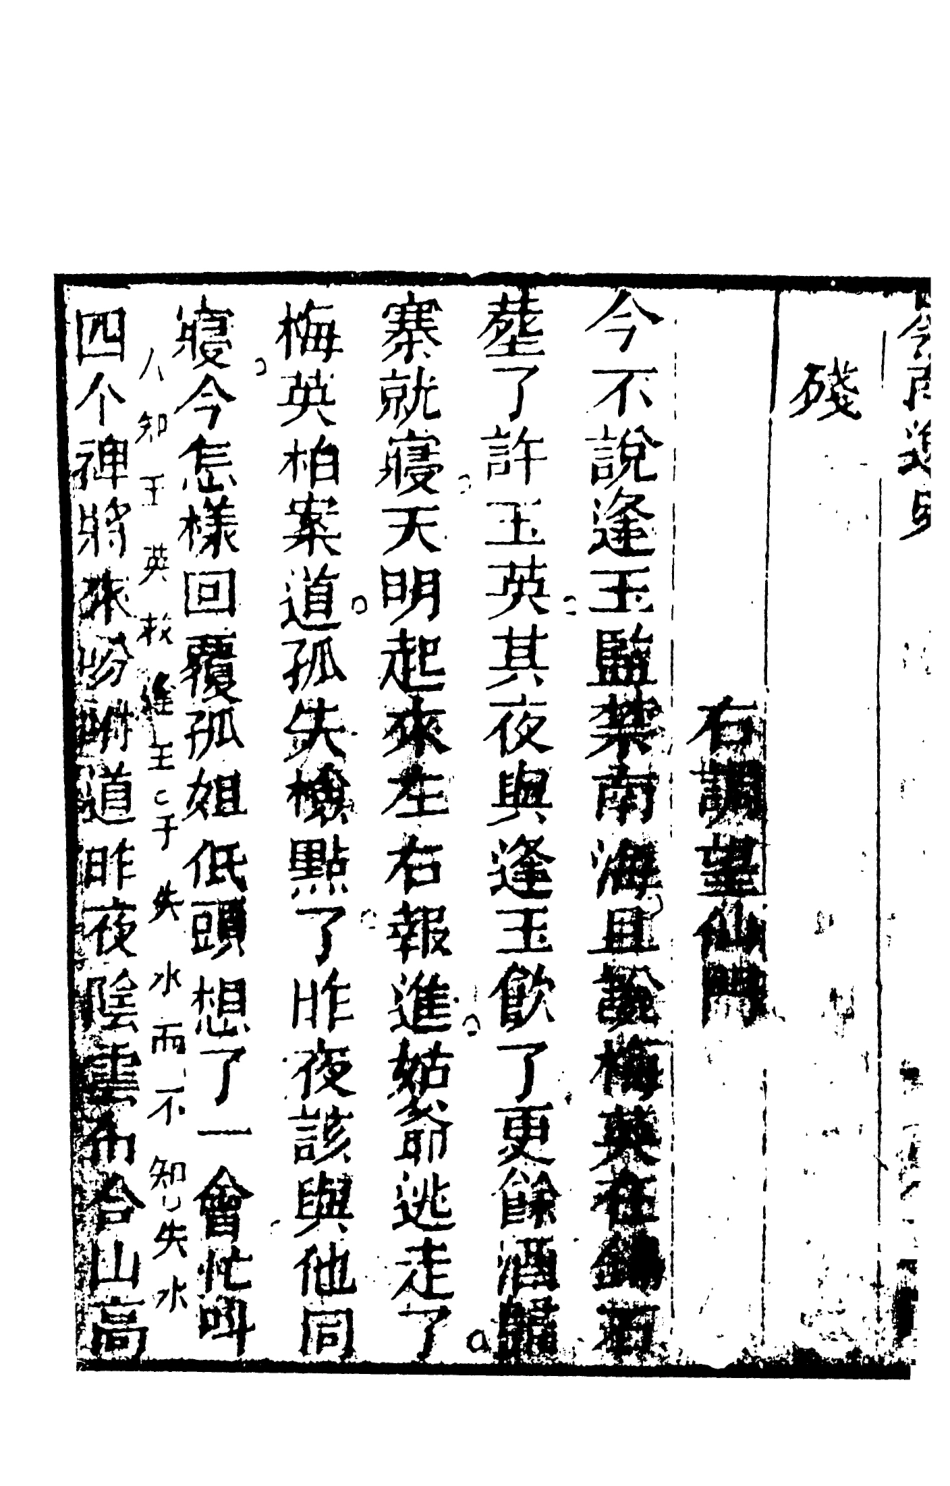 嶺南逸史
殘
右調望仙門
今不說逢玉監禁南海且說梅英在錦石
塟了許玉英其夜與逢玉飲了更餘酒歸
寨就寢天明起來左右報進姑爺逃走了
梅英柏案道孤失檢點了昨夜該與他同
寢今怎樣回覆孤姐低頭想了一會忙呌
人知王英板維王已子失水而不知失水
四个禆將來吩咐道昨夜陰雲布合山高